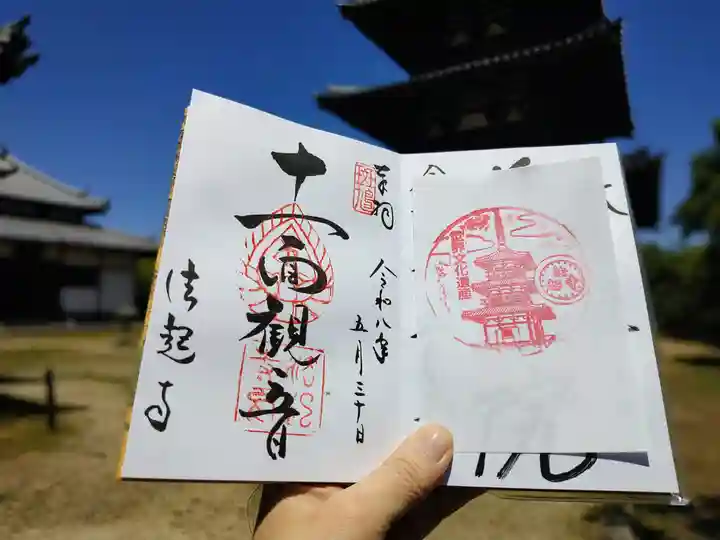 奉拝
斑鳩
令和八年
五月三十日
十一面観音
法起寺
世界文化遺産